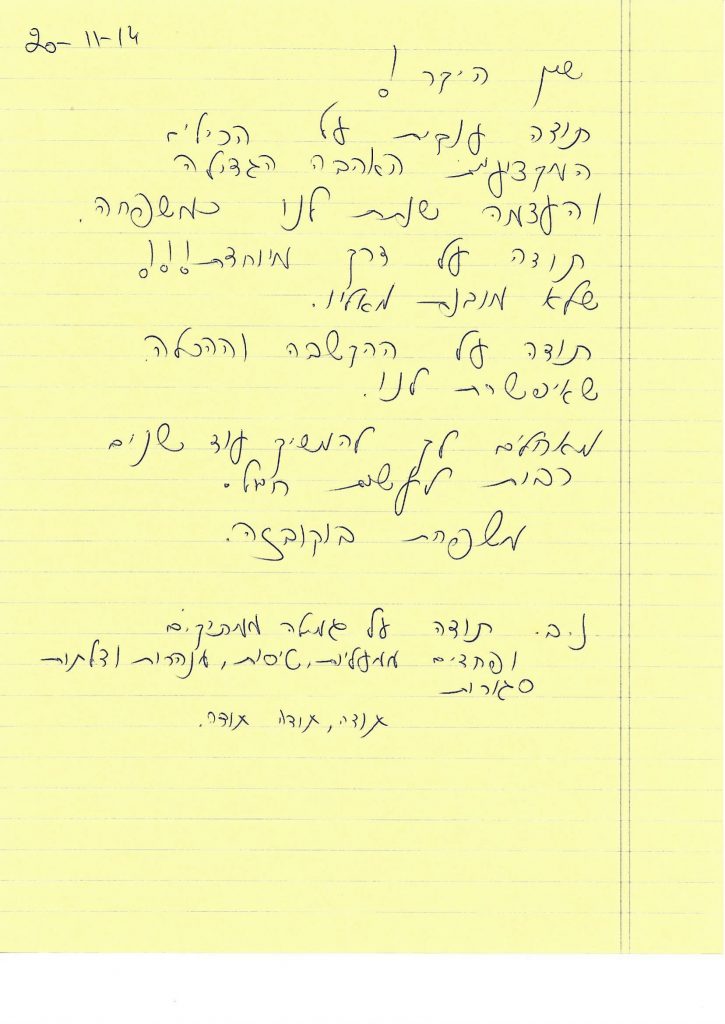 20-11-14
היקר!
תודה ענקית על הכילים
המקצועית האהבה הגדולה
והעצמה שנתת לנו כמשפחה.
תודה על דרך מיוחדת!!!
שלא מובנת מאליו.
תודה על ההקשבה וההכלה
שאיפשרת לנו.
מאחלים לך להמשיך עוד שנים
רבות לעשות חייל.
משפחת בוקובזה.
נ.ב. תודה על גמילה ממתיקים
ופחדים ממעליות, טיסות, מנהרות ודלתות
סגורות
תודה, תודה תודה.